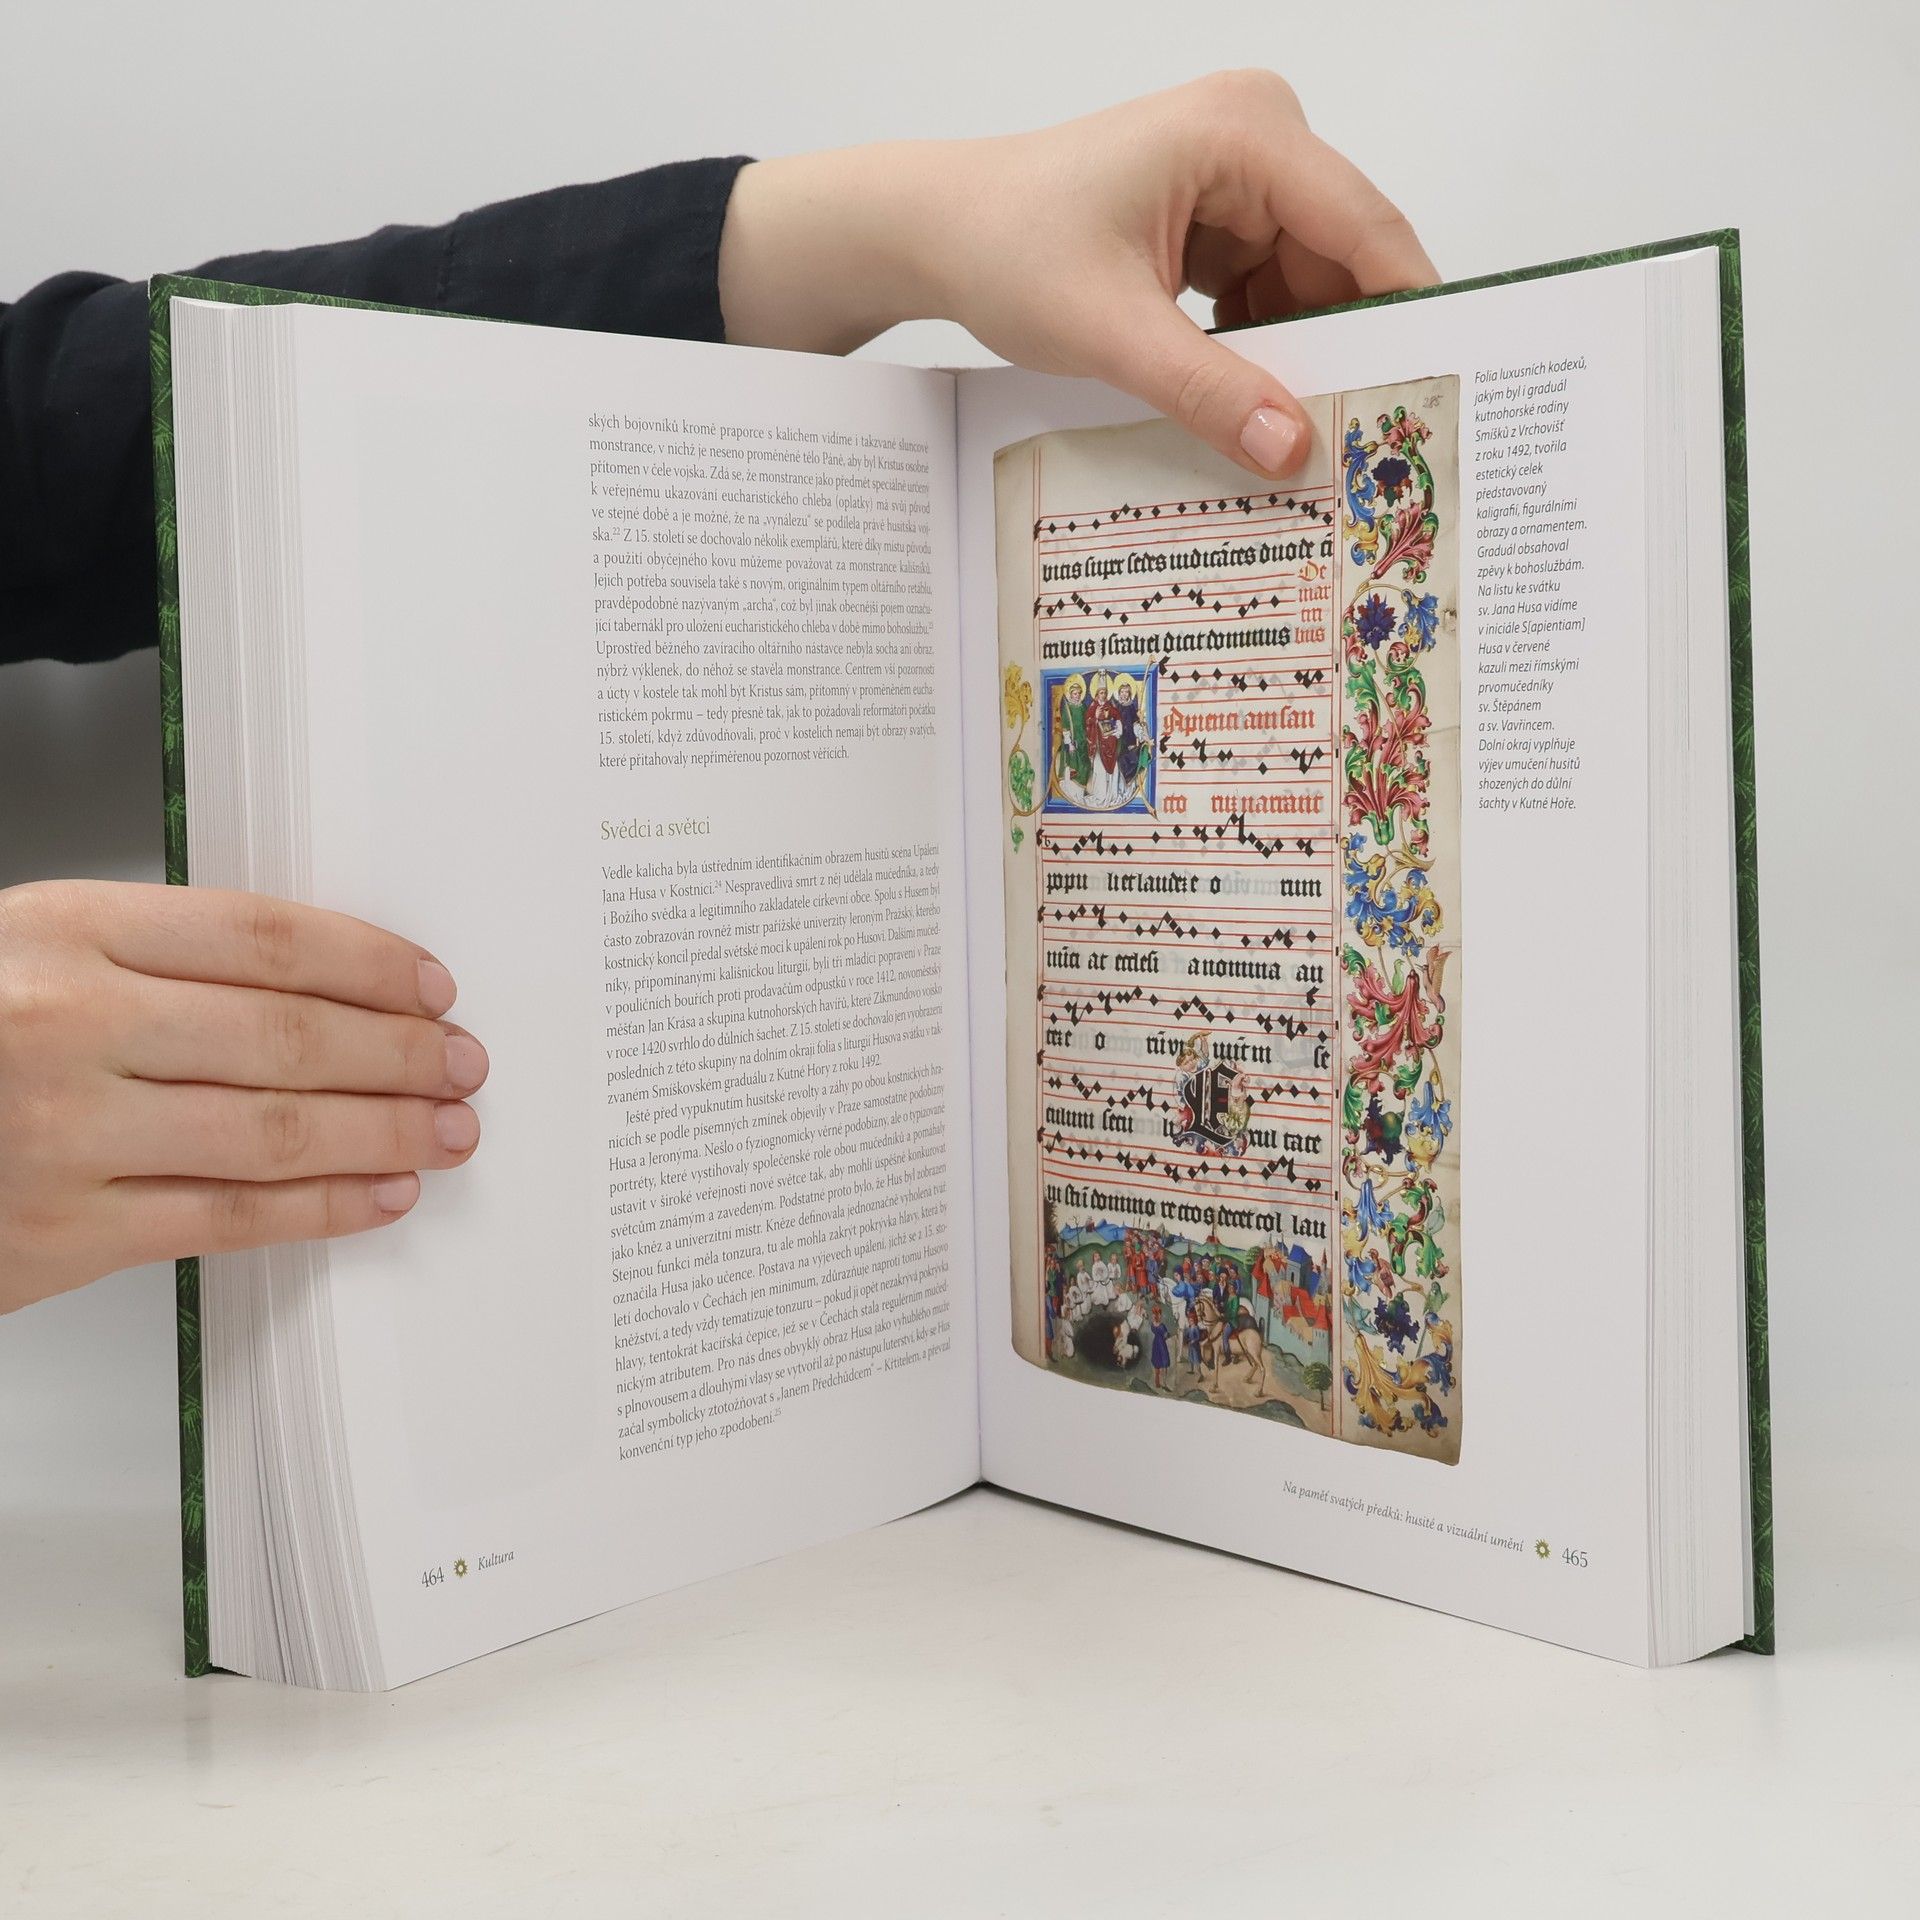 ských bojovníků kromě praporce s kalichem vidíme i takzvané sluncové
monstrance, v nichž je neseno proměněné tělo Páně, aby byl Kristus osobně
přítomen v čele vojska. Zdá se, že monstrance jako předmět speciálně určený
k veřejnému ukazování eucharistického chleba (oplatky) má svůj původ
ve stejné době a je možné, že na „vynálezu“ se podílela právě husitská voj-
ska.22 Z 15. století se dochovalo několik exemplářů, které díky místu původu
a použití obyčejného kovu můžeme považovat za monstrance kališníků.
Jejich potřeba souvisela také s novým, originálním typem oltářního retáblu,
pravděpodobně nazývaným „archa“, což byl jinak obecnější pojem označu-
jící tabernákl pro uložení eucharistického chleba v době mimo bohoslužbu.23
Uprostřed běžného zavíracího oltářního nástavce nebyla socha ani obraz,
nýbrž výklenek, do něhož se stavěla monstrance. Centrem vší pozornosti
a úcty v kostele tak mohl být Kristus sám, přítomný v proměněném eucha-
ristickém pokrmu – tedy přesně tak, jak to požadovali reformátoři počátku
15. století, když zdůvodňovali, proč v kostelích nemají být obrazy svatých,
které přitahovaly nepřiměřenou pozornost věřících.
Svědci a světci
Vedle kalicha byla ústředním identifikačním obrazem husitů scéna Upálení
Jana Husa v Kostnici.24 Nespravedlivá smrt z něj udělala mučedníka, a tedy
i Božího svědka a legitimního zakladatele církevní obce. Spolu s Husem byl
často zobrazován rovněž mistr pařížské univerzity Jeroným Pražský, kterého
kostnický koncil předal světské moci k upálení rok po Husovi. Dalšími mučed-
níky, připomínanými kališnickou liturgií, byli tři mladíci popravení v Praze
v pouličních bouřích proti prodavačům odpustků v roce 1412, novoměstský
měšťan Jan Krása a skupina kutnohorských havířů, které Zikmundovo vojsko
v roce 1420 svrhlo do důlních šachet. Z 15. století se dochovalo jen vyobrazení
posledních z této skupiny na dolním okraji folia s liturgií Husova svátku v tak-
zvaném Smíškovském graduálu z Kutné Hory z roku 1492.
Ještě před vypuknutím husitské revolty a záhy po obou kostnických hra-
nicích se podle písemných zmínek objevily v Praze samostatné podobizny
Husa a Jeronýma. Nešlo o fyziognomicky věrné podobizny, ale o typizované
portréty, které vystihovaly společenské role obou mučedníků a pomáhaly
ustavit v široké veřejnosti nové světce tak, aby mohli úspěšně konkurovat
světcům známým a zavedeným. Podstatné proto bylo, že Hus byl zobrazen
jako kněz a univerzitní mistr. Kněze definovala jednoznačně vyholená tvář.
Stejnou funkci měla tonzura, tu ale mohla zakrýt pokrývka hlavy, která by
označila Husa jako učence. Postava na výjevech upálení, jichž se z 15. sto-
letí dochovalo v Čechách jen minimum, zdůrazňuje naproti tomu Husovo
kněžství, a tedy vždy tematizuje tonzuru – pokud ji opět nezakrývá pokrývka
hlavy, tentokrát kacířská čepice, jež se v Čechách stala regulérním mučed-
nickým atributem. Pro nás dnes obvyklý obraz Husa jako vyhublého muže
s plnovousem a dlouhými vlasy se vytvořil až po nástupu luterství, kdy se Hus
začal symbolicky ztotožňovat s „Janem Předchůdcem“ – Křtitelem, a převzal
konvenční typ jeho zpodobení.25
464 Kultura
285
bitis super sedes iudicātes duode cī
De
mar
tiri
bus
tribus israhel dicit dominus
Apienci am san
cto rum narrant
popu li et laudeze o rum
nūci at ecclesi a nomina au
teze o rū vi uūt in se
culum secu li E xul tate
iusti domino rectos decet col lau
Folia luxusních kodexů,
jakým byl i graduál
kutnohorské rodiny
Smíšků z Vrchovišť
z roku 1492, tvořila
estetický celek
představovaný
kaligrafií, figurálními
obrazy a ornamentem.
Graduál obsahoval
zpěvy k bohoslužbám.
Na listu ke svátku
sv. Jana Husa vidíme
v iniciále S[apientiam]
Husa v červené
kazuli mezi římskými
prvomučedníky
sv. Štěpánem
a sv. Vavřincem.
Dolní okraj vyplňuje
výjev umučení husitů
shozených do důlní
šachty v Kutné Hoře.
Na paměť svatých předků: husité a vizuální umění 465